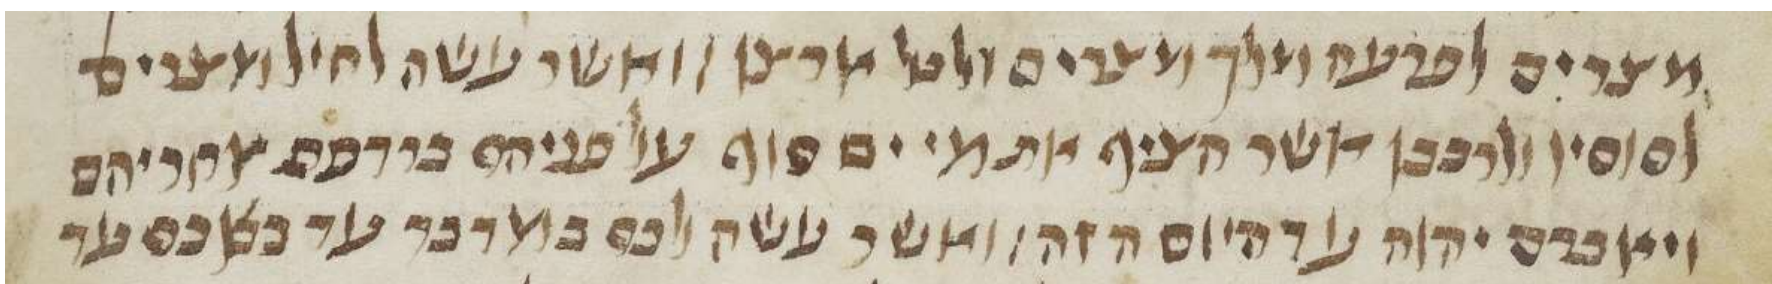 מצרים לפרעה מלך מצרים ולכל ארצו / ואשר עשה לחיל מצרים
לסוסיו ולרכבו אשר הציף את מי ים סוף על פניהם ברדפם אחריהם
ויאבדם יהוה עד היום הזה / ואשר עשה לכם במדבר עד באכם עד